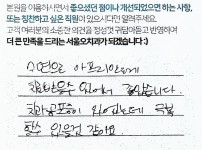 본원을 이용하시면서 좋으셨던 점이나 개선되었으면 하는 사항,
또는 칭찬하고 싶은 직원이 있으시다면 알려주세요.
고객 여러분의 소중한 의견을 정성껏 귀담아듣고 반영하여
더 큰 만족을 드리는 서울오치과가 되겠습니다 :)
수면으로 아프지않게
치료받을수 있어서 좋았습니다.
치과공포증이 있었는데 극복
할수 있을것 같아요